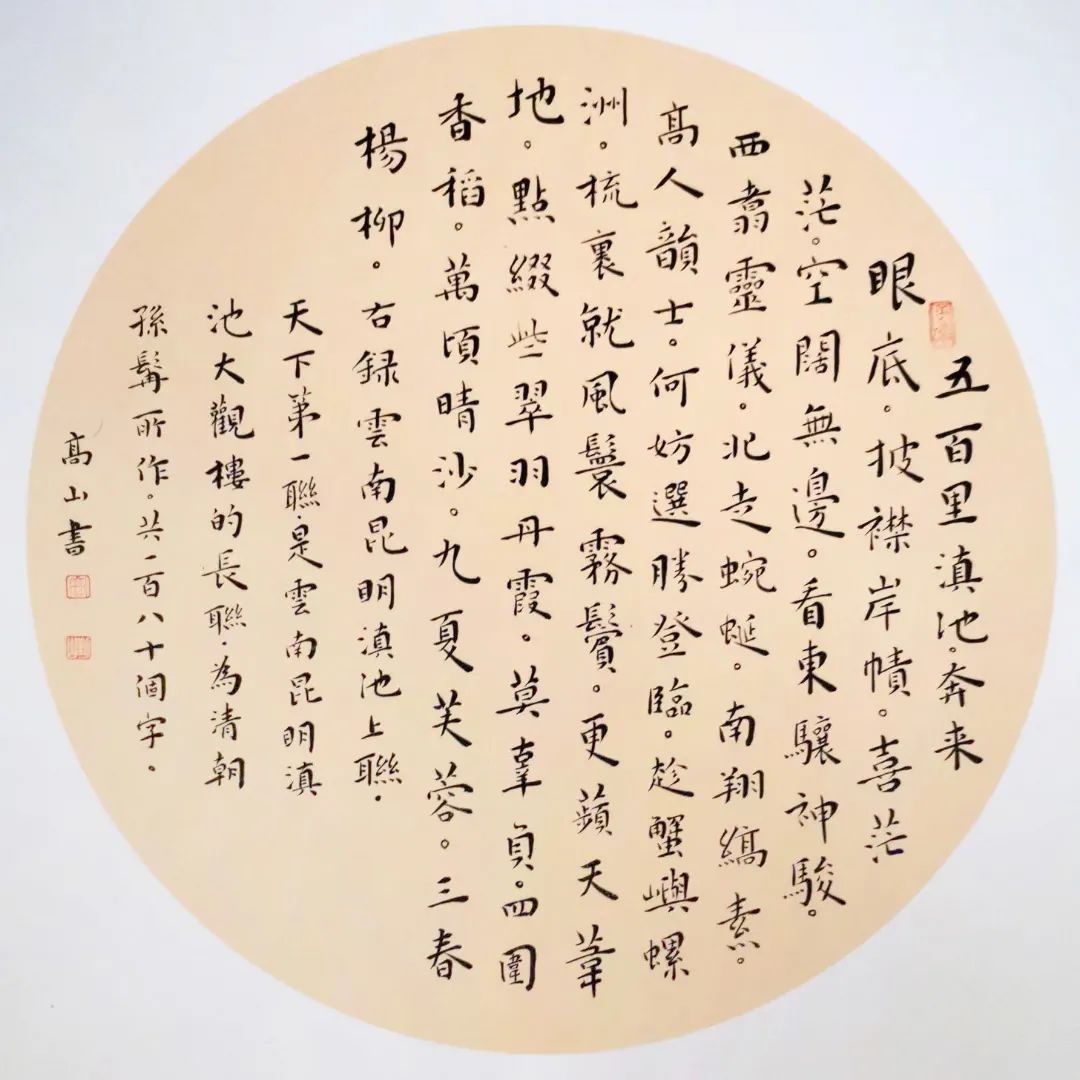 五百里滇池。奔来
眼底。披襟岸幘。喜茫
茫。空闊無邊。看東驤神駿。
西翥靈儀。北走蜿蜒。南翔縞素。
高人韻士。何妨選勝登臨。趁蟹嶼螺
洲。梳裹就風鬟霧鬢。更蘋天葦
地。點綴些翠羽丹霞。莫辜負。四圍
香稻。萬頃晴沙。九夏芙蓉。三春
楊柳。右録雲南昆明滇池上聯.
天下第一聯.是雲南昆明滇
池大觀樓的長聯.為清朝
孫髯所作。共一百八十個字。
高山書